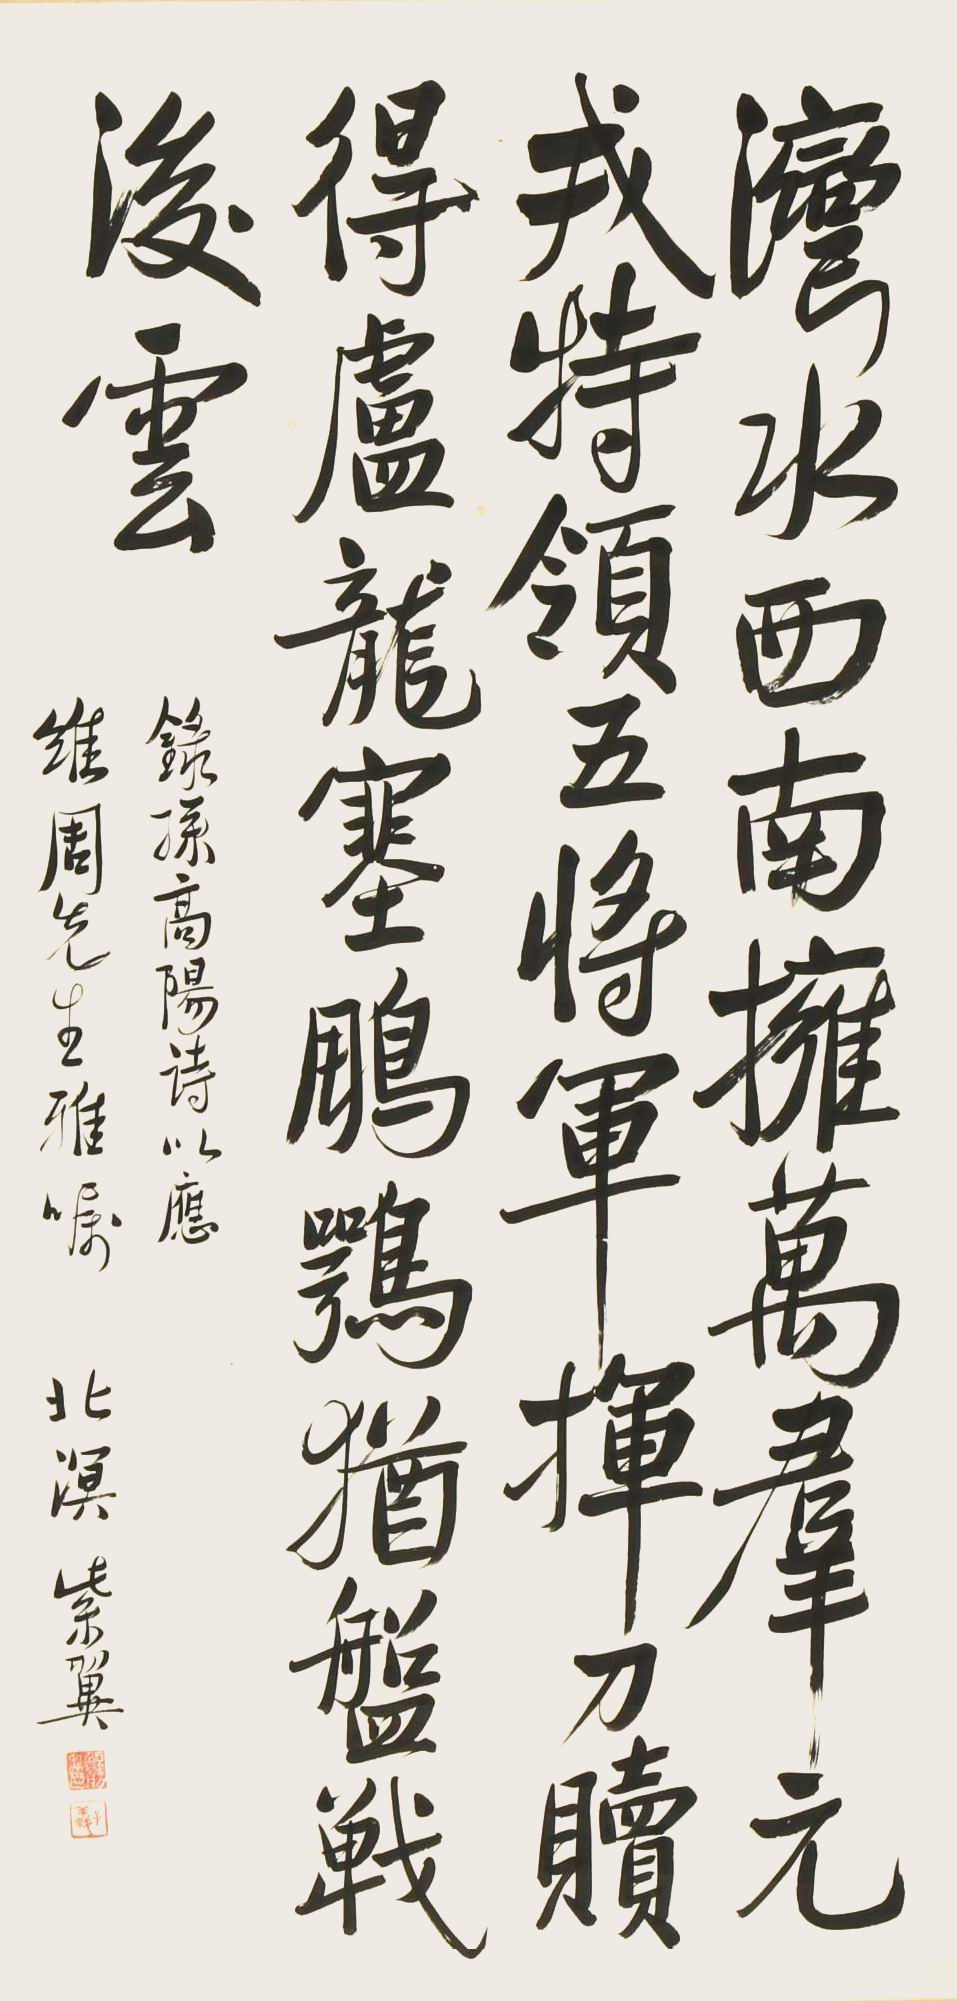 灣水西南擁萬羣元
戎特領五將軍揮刀贖
得盧龍塞鵰鶚猶盤戰
後雲
錄孫高陽詩以應
維周先生雅嘱
北溟 紫翼